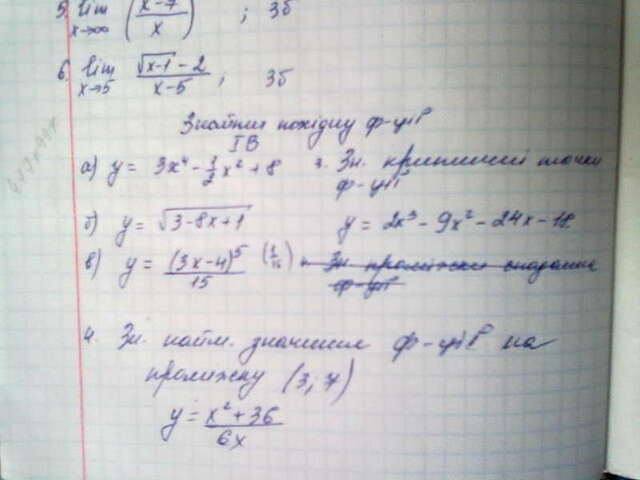 5. lim x→∞ (x-7 / x) ; 3б
6. lim x→5 √x-1 - 2 / x-5 ; 3б
Знайти похідну ф-ції
I В
а) y = 3x⁴ - 1/2 x² + 8
3. Зн. критичні точки
ф-ції
y = 2x³ - 9x² - 24x - 18.
б) y = √3-8x+1
в) y = (3x-4)⁵ / 15
Зн. проміжки
ф-ції
4. Зн. найм. значення ф-ції на
проміжку (3, 7)
y = x² + 36 / 6x